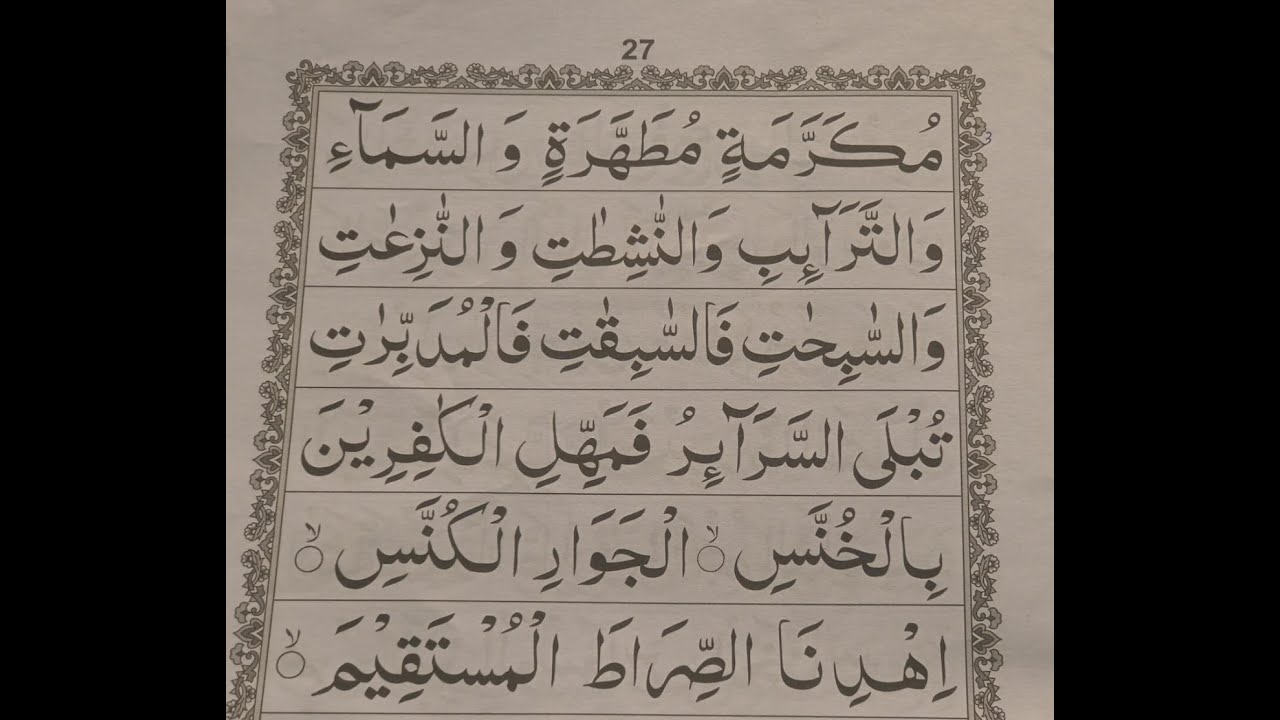 27
مُكَرَّمَةٍ مُطَهَّرَةٍ وَ السَّمَآءِ
وَالتَّرَآئِبِ وَالنّٰشِطٰتِ وَ النّٰزِعٰتِ
وَالسّٰبِحٰتِ فَالسّٰبِقٰتِ فَالْمُدَبِّرٰتِ
تُبْلَى السَّرَآئِرُ فَمَهِّلِ الْكٰفِرِيْنَ
بِالْخُنَّسِ ۙ الْجَوَارِ الْكُنَّسِ ۙ
اِهْدِنَا الصِّرَاطَ الْمُسْتَقِيْمَ ۙ